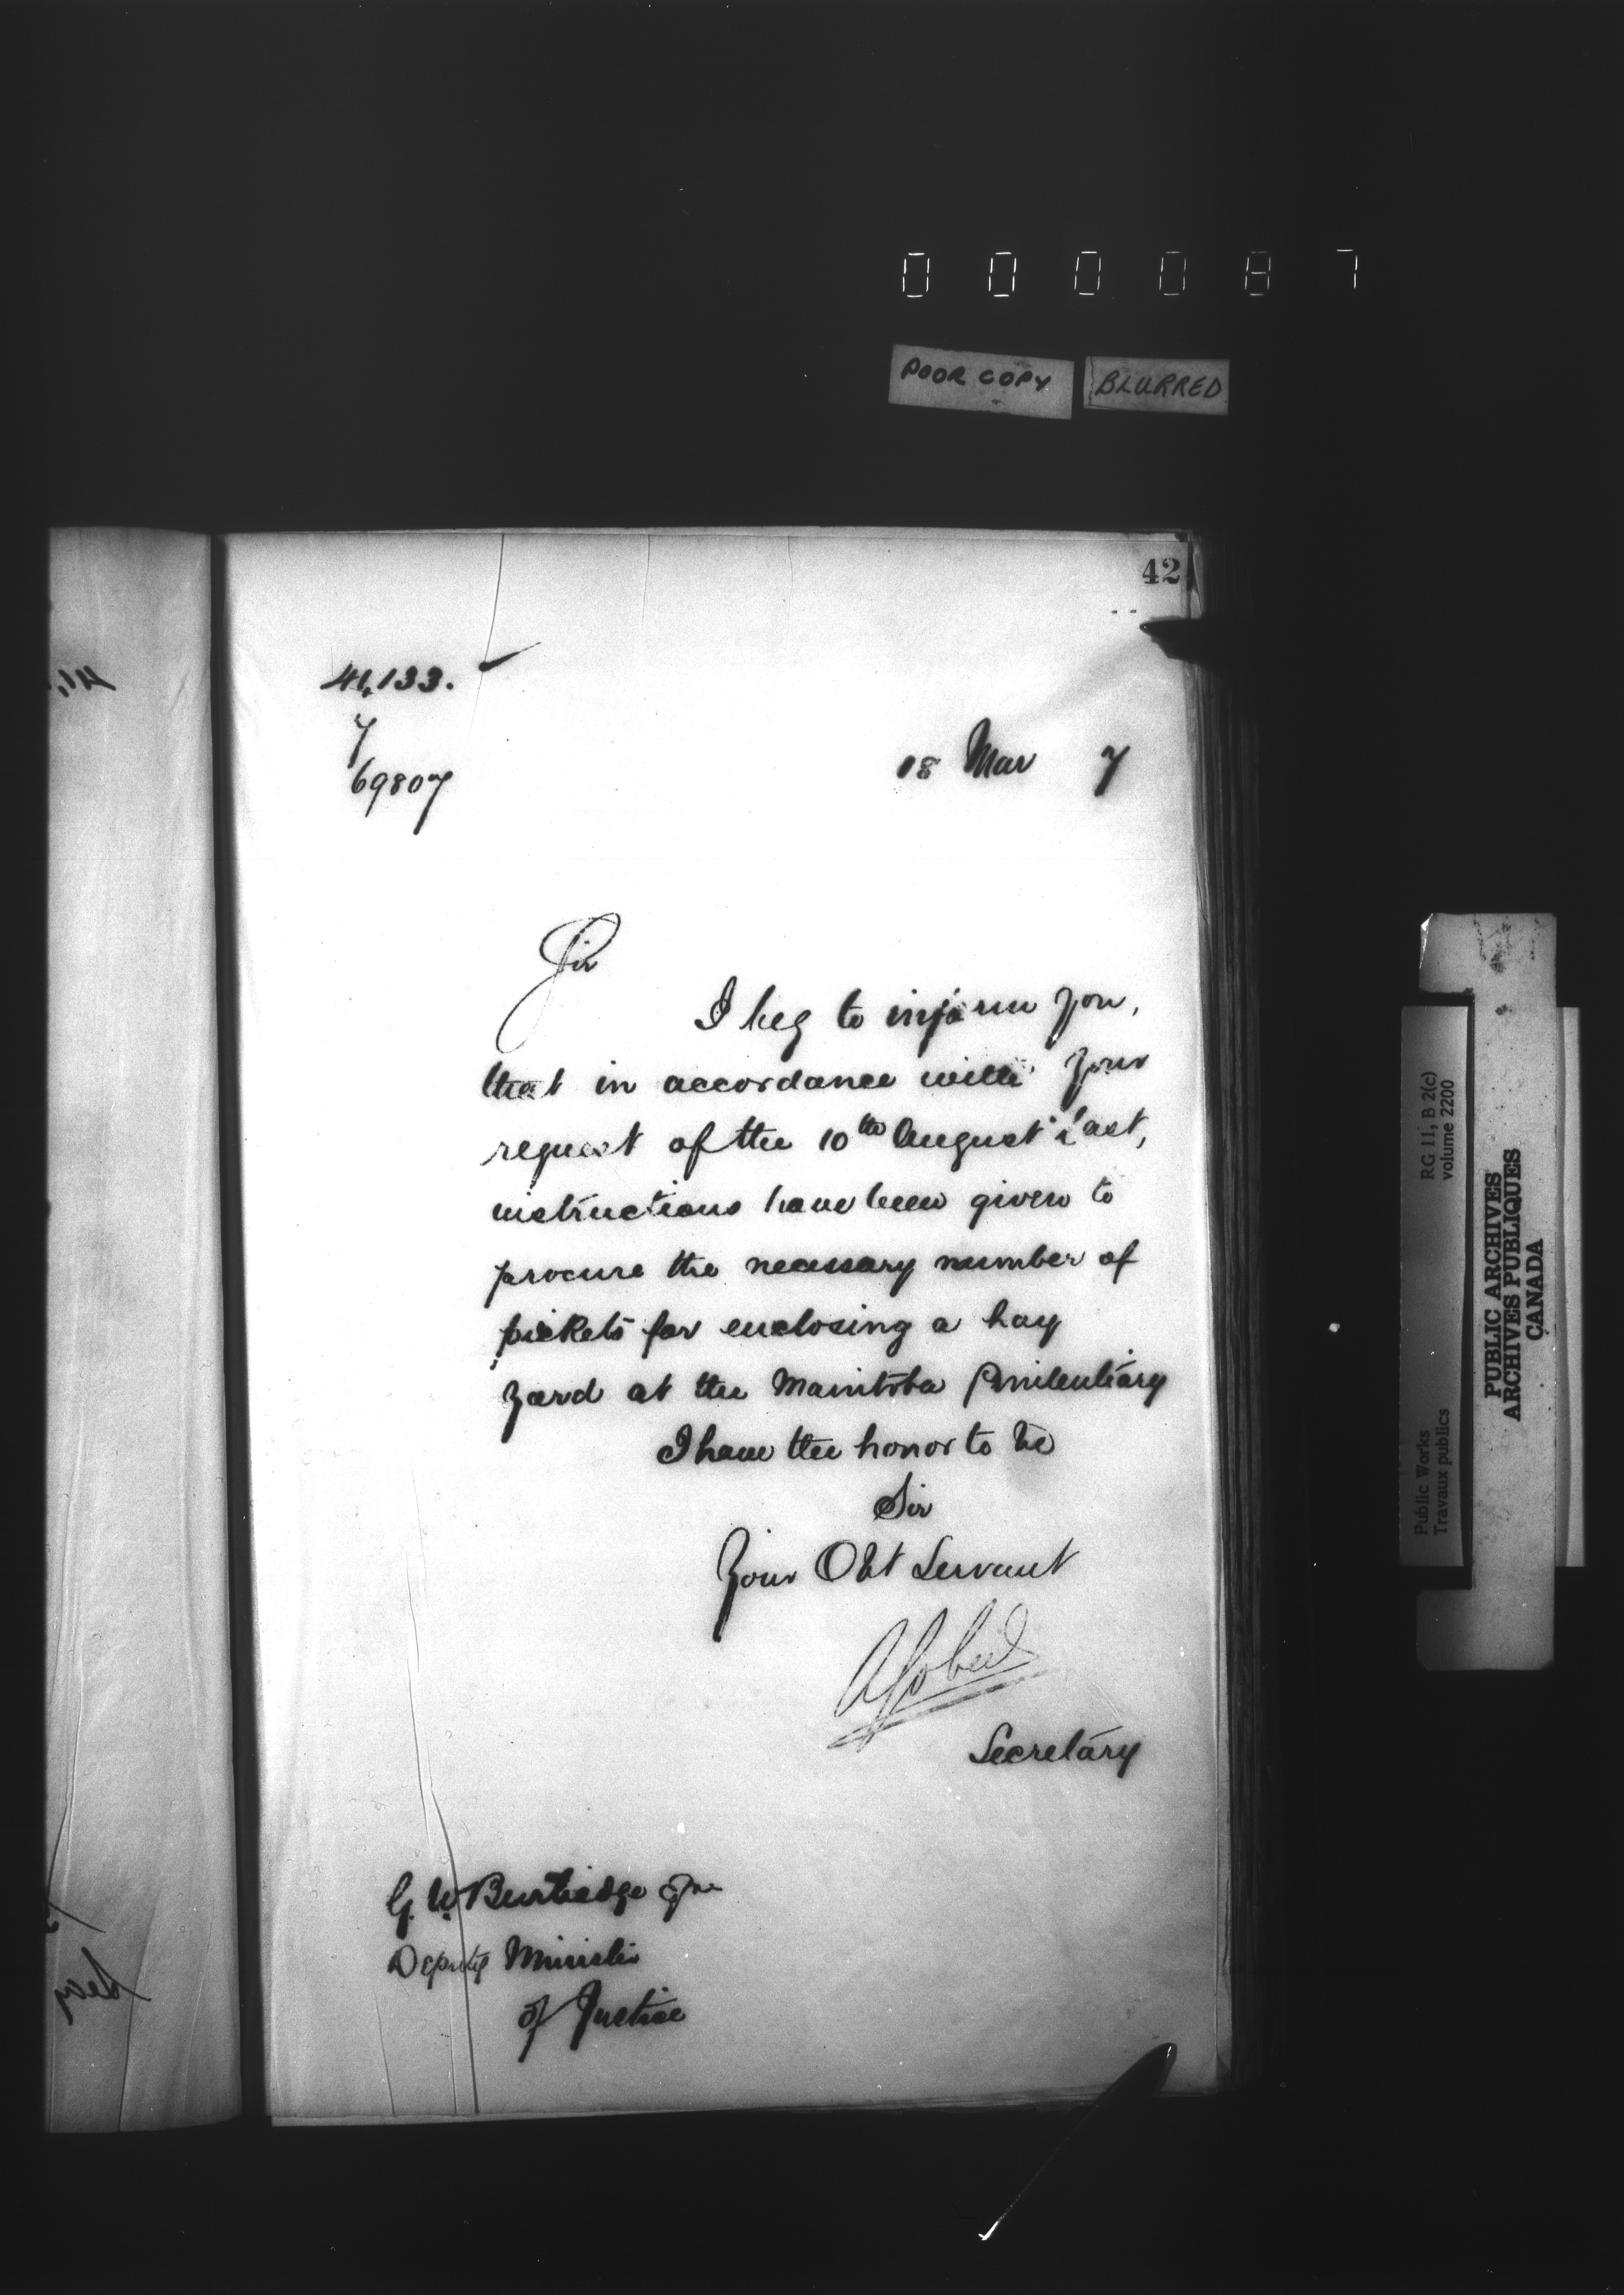 000087
POOR COPY BLURRED
42
41,133.
7
69807
18 Mar 7
Sir
I beg to inform you,
that in accordance with your
request of the 10th August last,
instructions have been given to
procure the necessary number of
pickets for enclosing a hay
yard at the Manitoba Penitentiary
I have the honor to be
Sir
Your Obt Servant
A Gobeil
Secretary
G. W. Burbidge Esqre
Deputy Minister
of Justice
RG 11, B 2(c)
volume 2200
Public Works
Travaux publics
PUBLIC ARCHIVES
ARCHIVES PUBLIQUES
CANADA